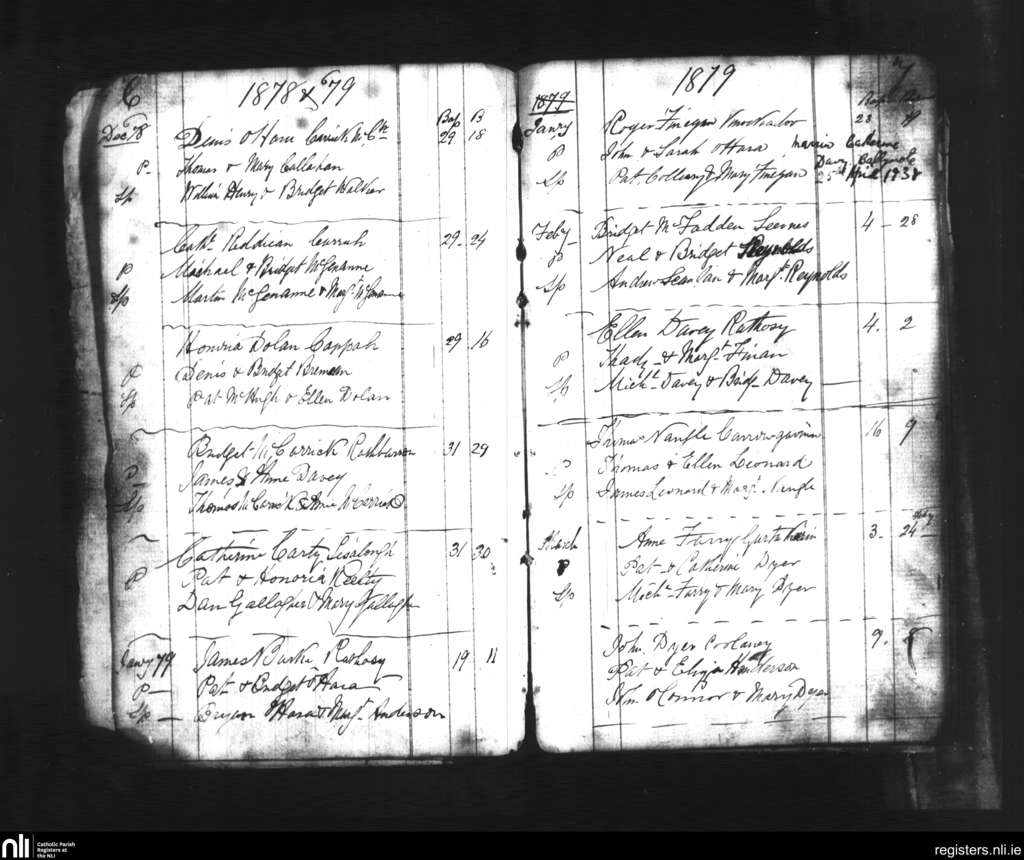 6
1878 & 79
Bap B
Decr 78 Denis O'Hara Carrick 29 18
P. Thomas & Mary Callahan
Sp William Henry & Bridget Walker
Cath. Reddican Currah 29-24
P Michael & Bridget McGenanne
Sp Martin McGenanne & Margt McGenanne
Honoria Dolan Cappah 29 16
P Denis & Bridget Brennan
Sp Pat McHugh & Ellen Dolan
Bridget McCarrick Rathbarron 31 29
P James & Anne Davey
Sp Thomas McCarrick & Anne McCarrick
Catherine Carty Lisalough 31 30
P Pat & Honoria Reilly
Dan Gallagher & Mary Gallagher
Jany 79 James Burke Rathosy 19 11
P Pat & Bridget O'Hara
Sp Bryan O'Hara & Margt Anderson
7
1879
1879
Jany Roger Finegan 28
P John & Sarah O'Hara
Sp Pat. Colleary & Mary Finegan
Married Catherine
Davey Ballymote
25th April 1938
Feby Bridget McFadden Leernes 4-28
P Neal & Bridget Reynolds
Sp Andrew Scanlan & Margt Reynolds
Ellen Davey Rathosy 4. 2
P Thady & Margt Finan
Sp Michl Davey & Bridg. Davey
Nangle 16 9
P Thomas & Ellen Leonard
Sp James Leonard & Margt. Nangle
March Anne Farry 3. 24
P Pat & Catherine Dyer
Sp Michl Farry & Mary Dyer
John Dyer Coolaney 9. 8
Pat & Eliza Henderson
Wm O'Connor & Mary Dyer
nli
Catholic Parish
Registers at
the NLI
registers.nli.ie